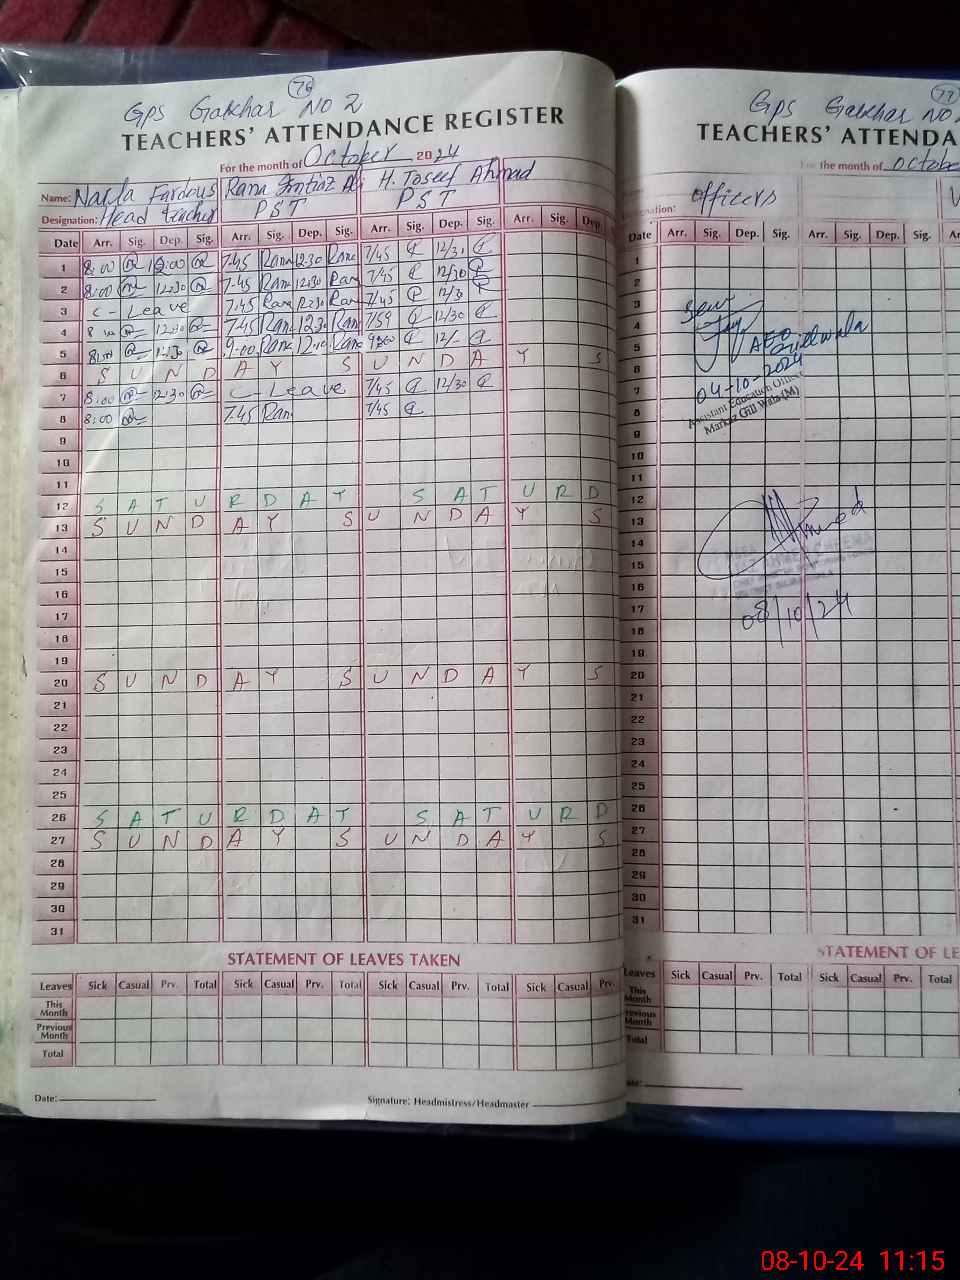 76
GPS Gakhar NO 2
TEACHERS' ATTENDANCE REGISTER
For the month of October 2024
Name: Nazla Fardous Rana Imtiaz Ali H. Toseef Ahmad
Designation: Head teacher PST PST
Date Arr. Sig. Dep. Sig. Arr. Sig. Dep. Sig. Arr. Sig. Dep. Sig. Arr. Sig. Dep.
1 8:00 12:00 7.45 Rana 12.30 Rana 7/45 12/31
2 8:00 12:30 7.45 Rana 12.30 Rana 7/45 12/30
3 C - Leave 7.45 Rana 12.30 Rana 7/45 12/30
4 12:30 7.45 Rana 12.30 Rana 7/59 12/30
5 9.00 Rana Rana
6 S U N D A Y S U N D A Y S
7 8:00 12:30 C - Leave 7/45 12/30
8 8:00 7.45 Rana 7/45
9
10
11
12 S A T U R D A Y S A T U R D
13 S U N D A Y S U N D A Y S
14
15
16
17
18
19
20 S U N D A Y S U N D A Y S
21
22
23
24
25
26 S A T U R D A Y S A T U R D
27 S U N D A Y S U N D A Y S
28
29
30
31
STATEMENT OF LEAVES TAKEN
Leaves Sick Casual Prv. Total Sick Casual Prv. Total Sick Casual Prv. Total Sick Casual Prv.
This Month
Previous Month
Total
Date:
Signature: Headmistress/Headmaster
77
GPS Gakhar NO
TEACHERS' ATTENDA
For the month of Octobe
officers
Designation:
Date Arr. Sig. Dep. Sig. Arr. Sig. Dep. Sig. Ar
1
2
3
4
5 AEO
6 Gillwala
7 04-10-2024
8 Assistant Education Officer
9 Markaz Gill Wala (M)
10
11
12
13
14
15
16
17 08/10/24
18
19
20
21
22
23
24
25
26
27
28
29
30
31
STATEMENT OF LE
Leaves Sick Casual Prv. Total Sick Casual Prv. Total
This Month
Previous Month
Total
08-10-24 11:15